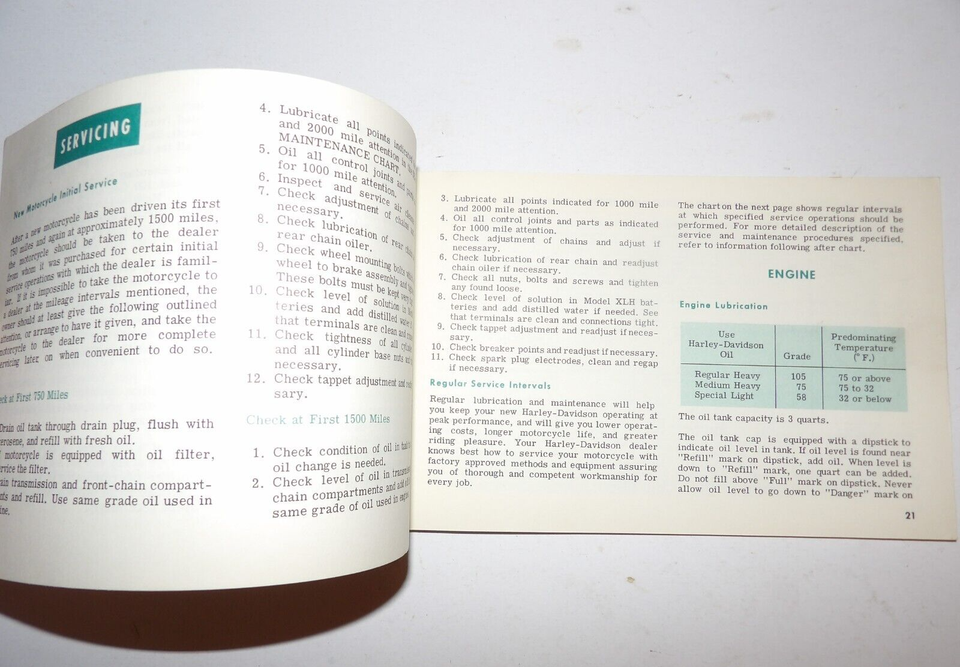 SERVICING
New Motorcycle Initial Service
After a new motorcycle has been driven its first
750 miles and again at approximately 1500 miles,
the motorcycle should be taken to the dealer
from whom it was purchased for certain initial
service operations with which the dealer is famil-
iar. If it is impossible to take the motorcycle to
a dealer at the mileage intervals mentioned, the
owner should at least give the following outlined
attention, or arrange to have it given, and take the
motorcycle to the dealer for more complete
servicing later on when convenient to do so.
at First 750 Miles
Drain oil tank through drain plug, flush with
kerosene, and refill with fresh oil.
motorcycle is equipped with oil filter,
service the filter.
transmission and front-chain compart-
and refill. Use same grade oil used in
4. Lubricate all points indicated
and 2000 mile attention in
MAINTENANCE CHART.
5. Oil all control joints and
for 1000 mile attention.
6. Inspect and service air
7. Check adjustment of chains
necessary.
8. Check lubrication of rear
rear chain oiler.
9. Check wheel mounting bolts
wheel to brake assembly and
These bolts must be kept very
10. Check level of solution in
teries and add distilled
that terminals are clean and
11. Check tightness of all
and all cylinder base nuts
necessary.
12. Check tappet adjustment and
sary.
Check at First 1500 Miles
1. Check condition of oil in
oil change is needed.
2. Check level of oil in
chain compartments and
same grade of oil used in
3. Lubricate all points indicated for 1000 mile
and 2000 mile attention.
4. Oil all control joints and parts as indicated
for 1000 mile attention.
5. Check adjustment of chains and adjust if
necessary.
6. Check lubrication of rear chain and readjust
chain oiler if necessary.
7. Check all nuts, bolts and screws and tighten
any found loose.
8. Check level of solution in Model XLH bat-
teries and add distilled water if needed. See
that terminals are clean and connections tight.
9. Check tappet adjustment and readjust if neces-
sary.
10. Check breaker points and readjust if necessary.
11. Check spark plug electrodes, clean and regap
if necessary.
Regular Service Intervals
Regular lubrication and maintenance will help
you keep your new Harley-Davidson operating at
peak performance, and will give you lower operat-
ing costs, longer motorcycle life, and greater
riding pleasure. Your Harley-Davidson dealer
knows best how to service your motorcycle with
factory approved methods and equipment assuring
you of thorough and competent workmanship for
every job.
The chart on the next page shows regular intervals
at which specified service operations should be
performed. For more detailed description of the
service and maintenance procedures specified,
refer to information following after chart.
ENGINE
Engine Lubrication
Use Harley-Davidson Oil Grade Predominating Temperature (° F.)
Regular Heavy 105 75 or above
Medium Heavy 75 75 to 32
Special Light 58 32 or below
The oil tank capacity is 3 quarts.
The oil tank cap is equipped with a dipstick to
indicate oil level in tank. If oil level is found near
"Refill" mark on dipstick, add oil. When level is
down to "Refill" mark, one quart can be added.
Do not fill above "Full" mark on dipstick. Never
allow oil level to go down to "Danger" mark on
21